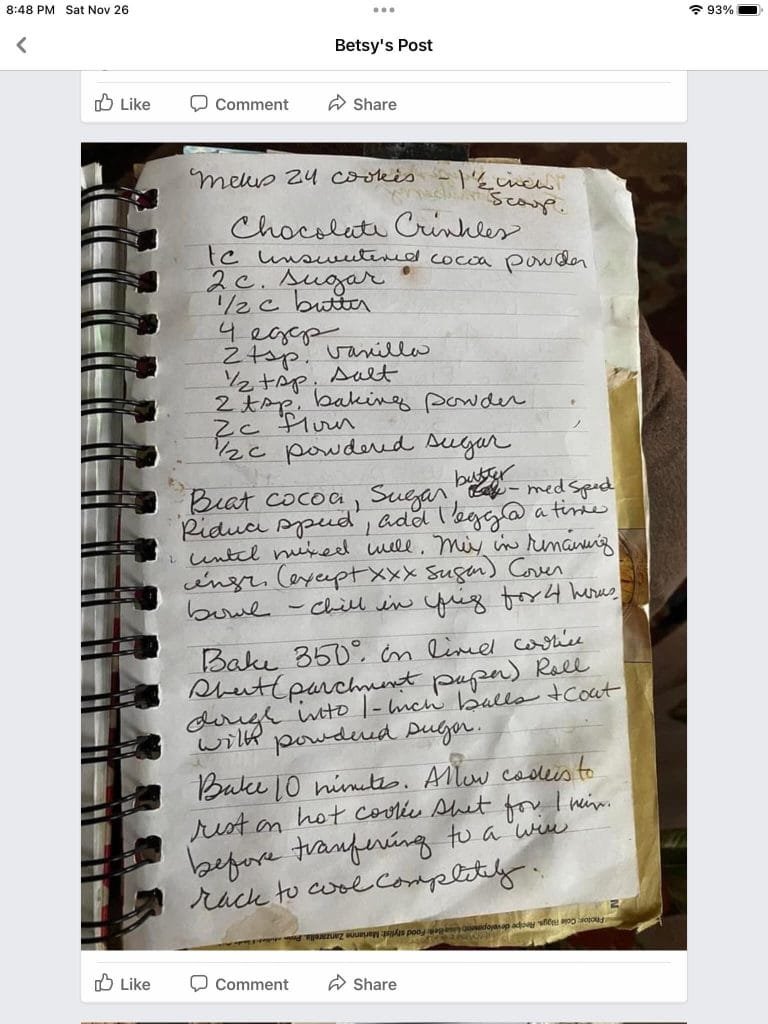 8:48 PM Sat Nov 26
93%
Betsy's Post
Like Comment Share
Makes 24 cookies - 1 1/2 inch
Scoop.
Chocolate Crinkles
1c unsweetened cocoa powder
2 c. sugar
1/2 c butter
4 eggs
2 tsp. vanilla
1/2 tsp. salt
2 tsp. baking powder
2c flour
1/2c powdered sugar
butter
Beat cocoa, Sugar - med sped
Reduce speed, add 1 egg @ a time
until mixed well. Mix in remaining
ingr. (except XXX sugar) Cover
bowl - chill in frig for 4 hours.
Bake 350°. on lined cookie
sheet (parchment paper) Roll
dough into 1-inch balls + coat
with powdered sugar.
Bake 10 minutes. Allow cookies to
rest on hot cookie sheet for 1 min.
before tranfering to a wire
rack to cool completely.
Photos: Cole Riggs. Recipe development: Food stylist: Marianne Zanzarella.
Like Comment Share